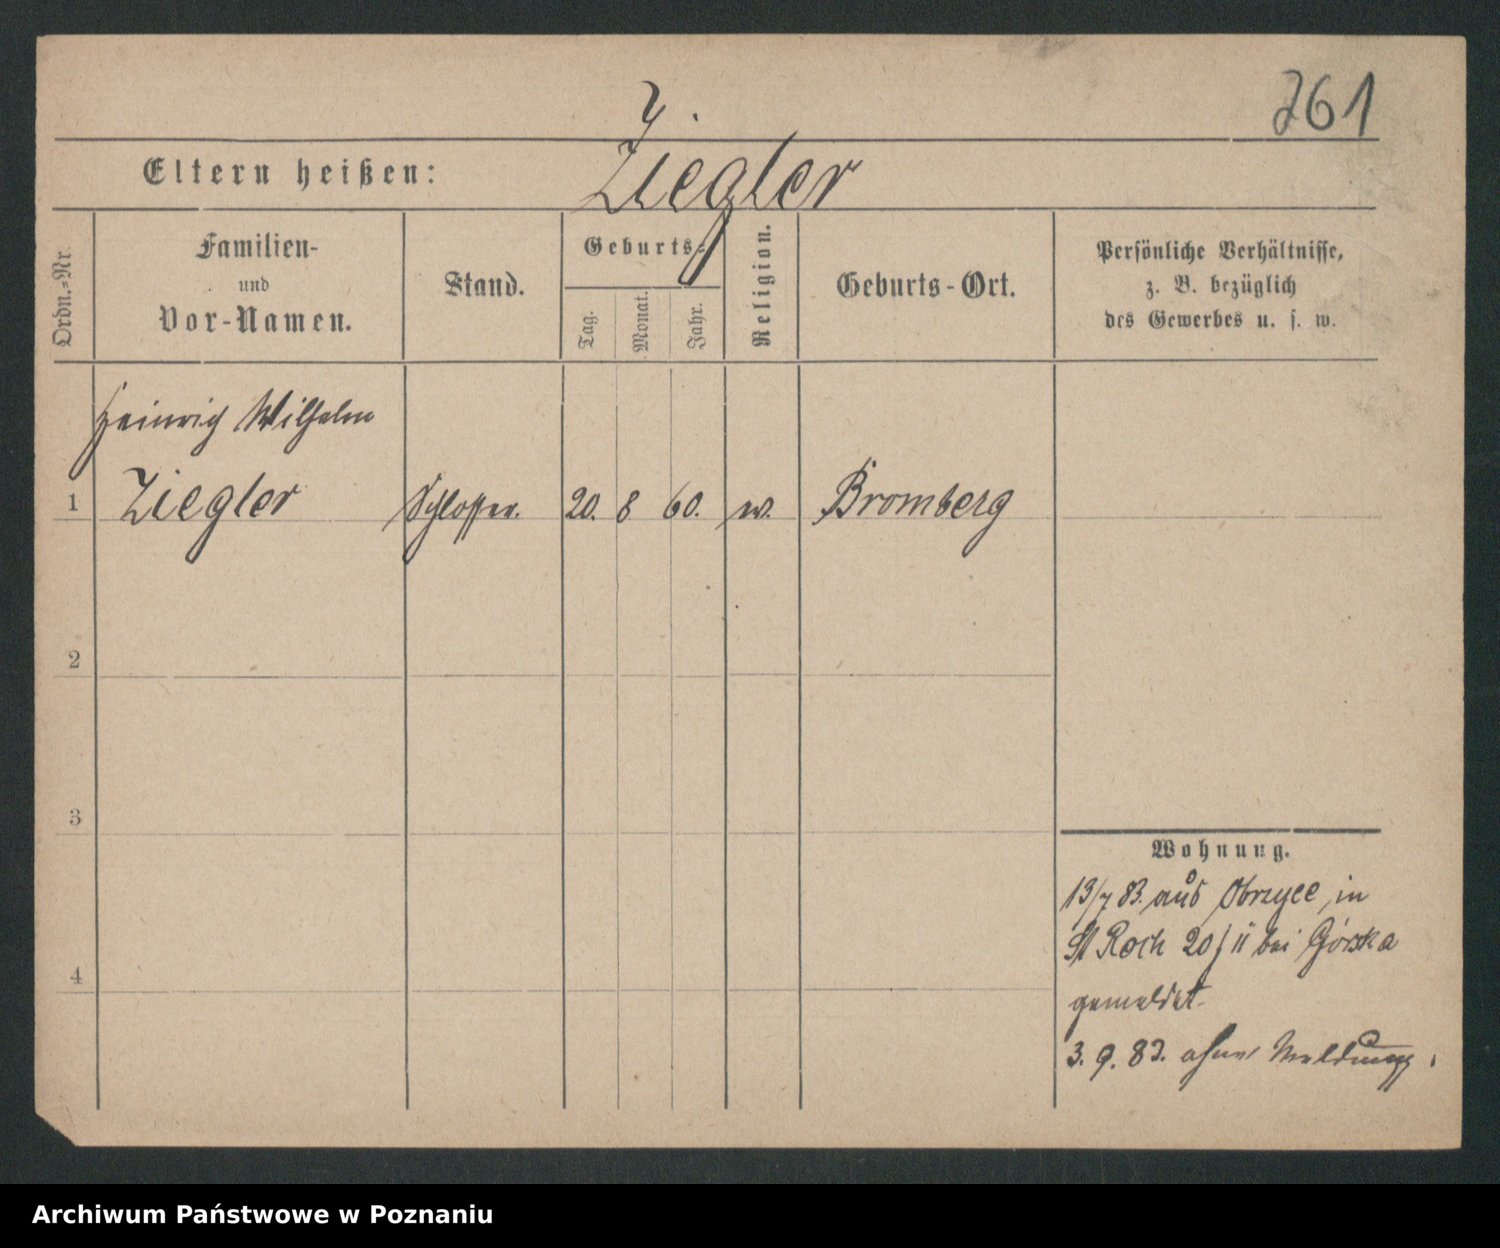 261
Eltern heißen: Ziegler
Ordn.-Nr.
Familien-
und
Vor-Namen.
Stand.
Geburts-
Tag.
Monat.
Jahr.
Religion.
Geburts-Ort.
Persönliche Verhältnisse,
z. B. bezüglich
des Gewerbes u. s. w.
Heinrich Wilhelm
1 Ziegler Schlosser. 20. 8 60. ev. Bromberg
2
3
4
Wohnung.
13/7 83. aus Obrzyce, in
St Roch 20/11 bei Górska
gemeldet
3. 9. 83. ohne Meldung.
Archiwum Państwowe w Poznaniu